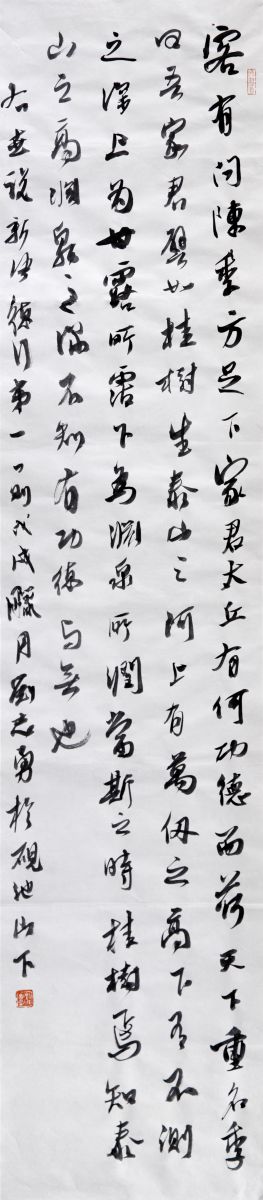 客有問陳季方足下家君太丘有何功德而荷天下重名季
曰吾家君譬如桂樹生泰山之阿上有萬仞之高下有不測
之深上為甘露所霑下為淵泉所潤當斯之時桂樹焉知泰
山之高淵泉之深不知有功德與無也
右世說新語德行第一一則戊戌臘月劉志勇於硯池山下